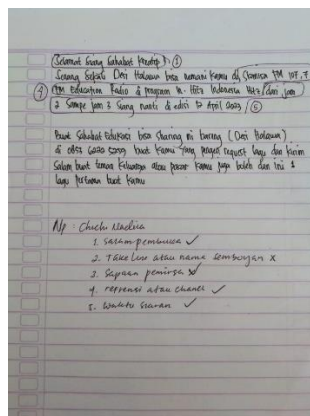 Selamat Siang Sahabat Kreatif ! ①
Senang Sekali Desi Halawa bisa nemani kamu di Stasiun FM 107.7
④ FM Education Radio di program In-Hitz Indonesia Hitz dari jam
2 Sampe jam 3 Siang nanti di edisi 17 April 2023 ⑤
Buat Sahabat Edukasi bisa Sharing ni bareng (Desi Halawa)
di 0852 buat Kamu yang pengen request lagu dan kirim
Salam buat teman keluarga atau pacar kamu juga boleh dan ini 1
lagu pertama buat kamu
Np : Chuchu Nadiva
1. Salam pembuka ✓
2. Take Line atau nama Sembunyan x
3. Sapaan pemirsa
4. reprensi atau chanel ✓
5. Waktu siaran ✓